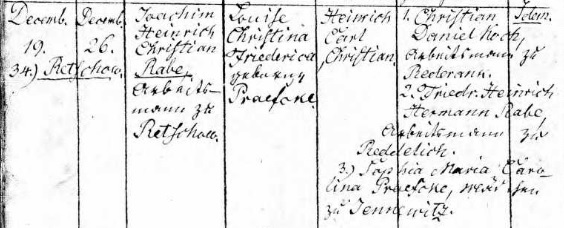 Decemb.
19.
34.) Retschow.
Decemb.
26.
Joachim
Heinrich
Christian
Rabe,
Arbeits-
mann zu
Retschow.
Louise
Christina
Friederica
geborne
Praefcke.
Heinrich
Carl
Christian.
1. Christian
Daniel Koch,
Arbeitsmann zu
2. Friedr. Heinrich
Hermann Rabe,
Arbeitsmann zu
Reddelich.
3.) Sophia Maria Caro-
lina Praefcke, Mädchen
zu Jennewitz.
Idem.